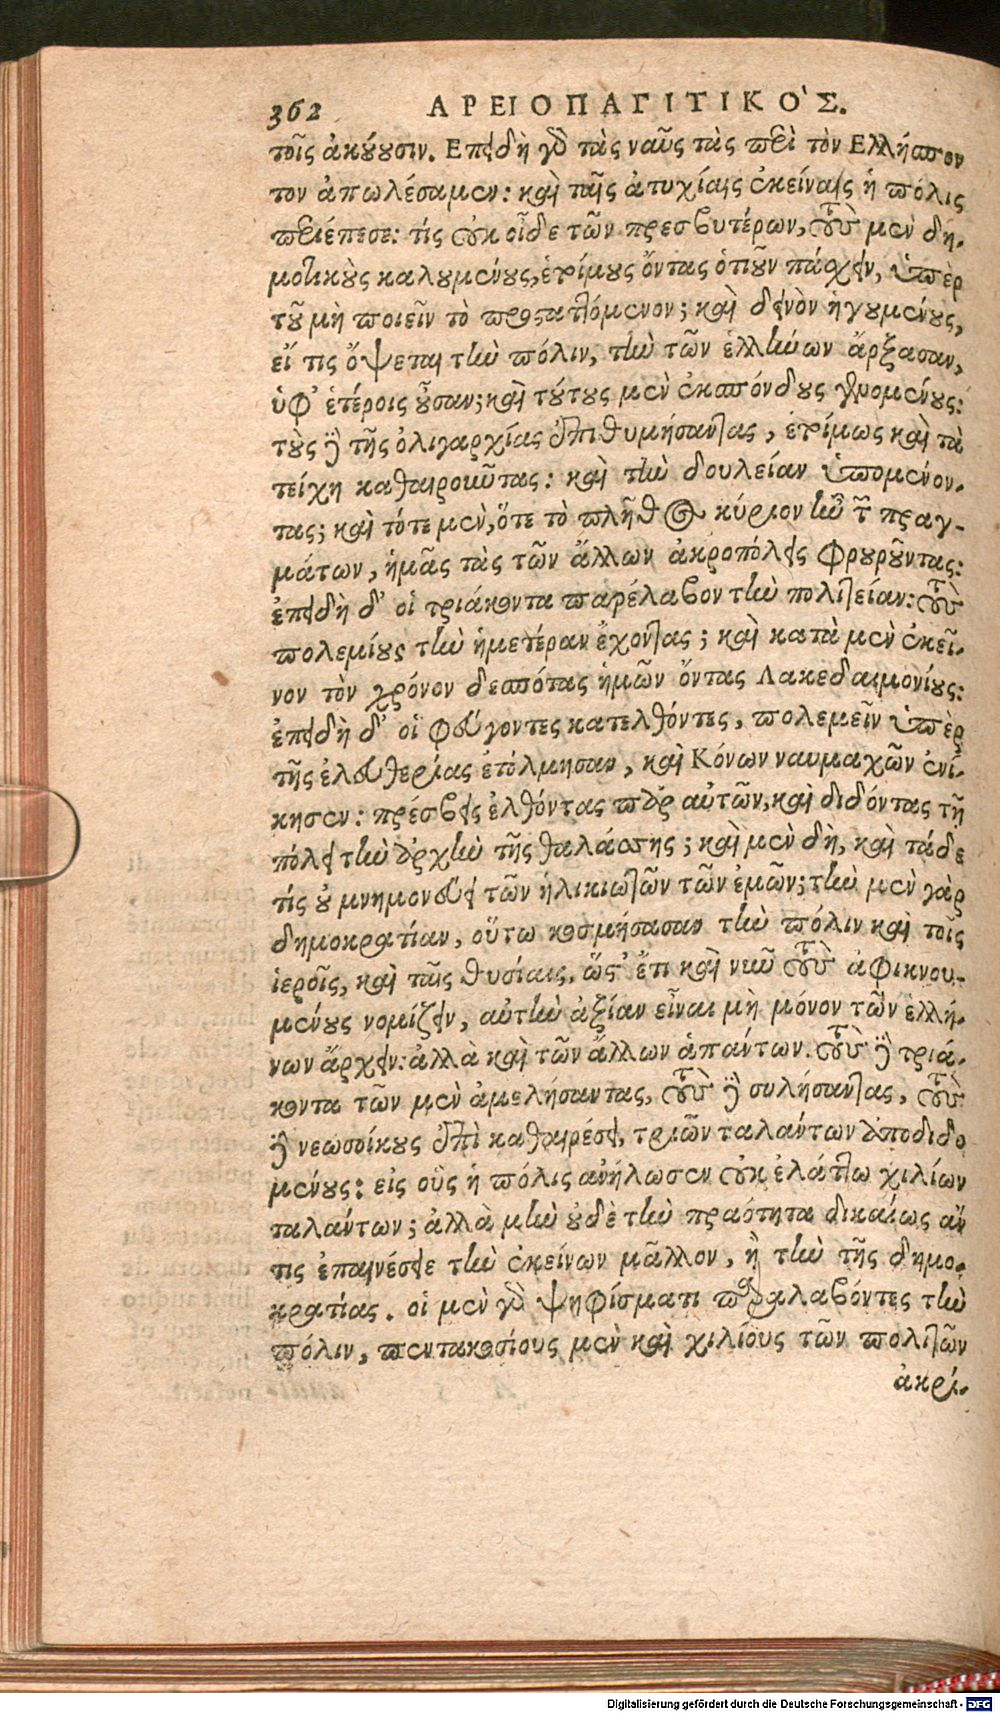 362 ΑΡΕΙΟΠΑΓΙΤΙΚΟ'Σ.
τοῖς ἀκούουσιν. Επειδὴ γὸ τὰς ναῦς τὰς περὶ τὸν Ελλήσπον
τον ἀπωλέσαμεν: καὶ ταῖς ἀτυχίαις ἐκείναις ἡ πόλις
περιέπεσε: τίς οὐκ οἶδε τῶν πρεσβυτέρων, τοὺς μὲν δη-
μοτικοὺς καλουμένους, ἑτοίμους ὄντας ὁτιοῦν πάσχειν, ὑπὲρ
τοῦ μὴ ποιεῖν τὸ προσταττόμενον; καὶ δεινὸν ἡγουμένους,
εἴ τις ὄψεται τὴν πόλιν, τὴν τῶν ἑλλήνων ἄρξασαν,
ὑφ' ἑτέροις οὖσαν; καὶ τούτους μὲν ἐκσπόνδους γενομένους:
τοὺς δὲ τῆς ὀλιγαρχίας ἐπιθυμήσαντας, ἑτοίμως καὶ τὰ
τείχη καθαιροῦντας: καὶ τὴν δουλείαν ὑπομένον-
τας; καὶ τότε μὲν, ὅτε τὸ πλῆθος κύριον ἦν τῶν πραγ-
μάτων, ἡμᾶς τὰς τῶν ἄλλων ἀκροπόλεις φρουροῦντας:
ἐπειδὴ δ' οἱ τριάκοντα παρέλαβον τὴν πολιτείαν: τοὺς
πολεμίους τὴν ἡμετέραν ἔχοντας; καὶ κατὰ μὲν ἐκεῖ-
νον τὸν χρόνον δεσπότας ἡμῶν ὄντας Λακεδαιμονίους:
ἐπειδὴ δ' οἱ φεύγοντες κατελθόντες, πολεμεῖν ὑπὲρ
τῆς ἐλευθερίας ἐτόλμησαν, καὶ Κόνων ναυμαχῶν ἐνί-
κησεν: πρέσβεις ἐλθόντας παρ' αὐτῶν, καὶ διδόντας τῇ
πόλει τὴν ἀρχὴν τῆς θαλάσσης; καὶ μὲν δὴ, καὶ τάδε
τίς οὐ μνημονεύει τῶν ἡλικιωτῶν τῶν ἐμῶν; τὴν μὲν γὰρ
δημοκρατίαν, οὕτω κοσμήσασαν τὴν πόλιν καὶ τοῖς
ἱεροῖς, καὶ ταῖς θυσίαις, ὥστ' ἔτι καὶ νῦν τοὺς ἀφικνου-
μένους νομίζειν, αὐτὴν ἀξίαν εἶναι μὴ μόνον τῶν ἑλλή-
νων ἄρχειν: ἀλλὰ καὶ τῶν ἄλλων ἁπάντων. τοὺς δὲ τριά-
κοντα τῶν μὲν ἀμελήσαντας, τοὺς δὲ συλήσαντας, τοὺς
δὲ νεωσοίκους ἐπὶ καθαιρέσει, τριῶν ταλάντων ἀποδιδο
μένους: εἰς οὓς ἡ πόλις ἀνήλωσεν οὐκ ἐλάττω χιλίων
ταλάντων; ἀλλὰ μὴν οὐδὲ τὴν πραότητα δικαίως ἄν
τις ἐπαινέσειε τὴν ἐκείνων μᾶλλον, ἢ τὴν τῆς δημο-
κρατίας. οἱ μὲν γὸ ψηφίσματι παραλαβόντες τὴν
πόλιν, πεντακοσίους μὲν καὶ χιλίους τῶν πολιτῶν
ἀκρί-
Digitalisierung gefördert durch die Deutsche Forschungsgemeinschaft - DFG